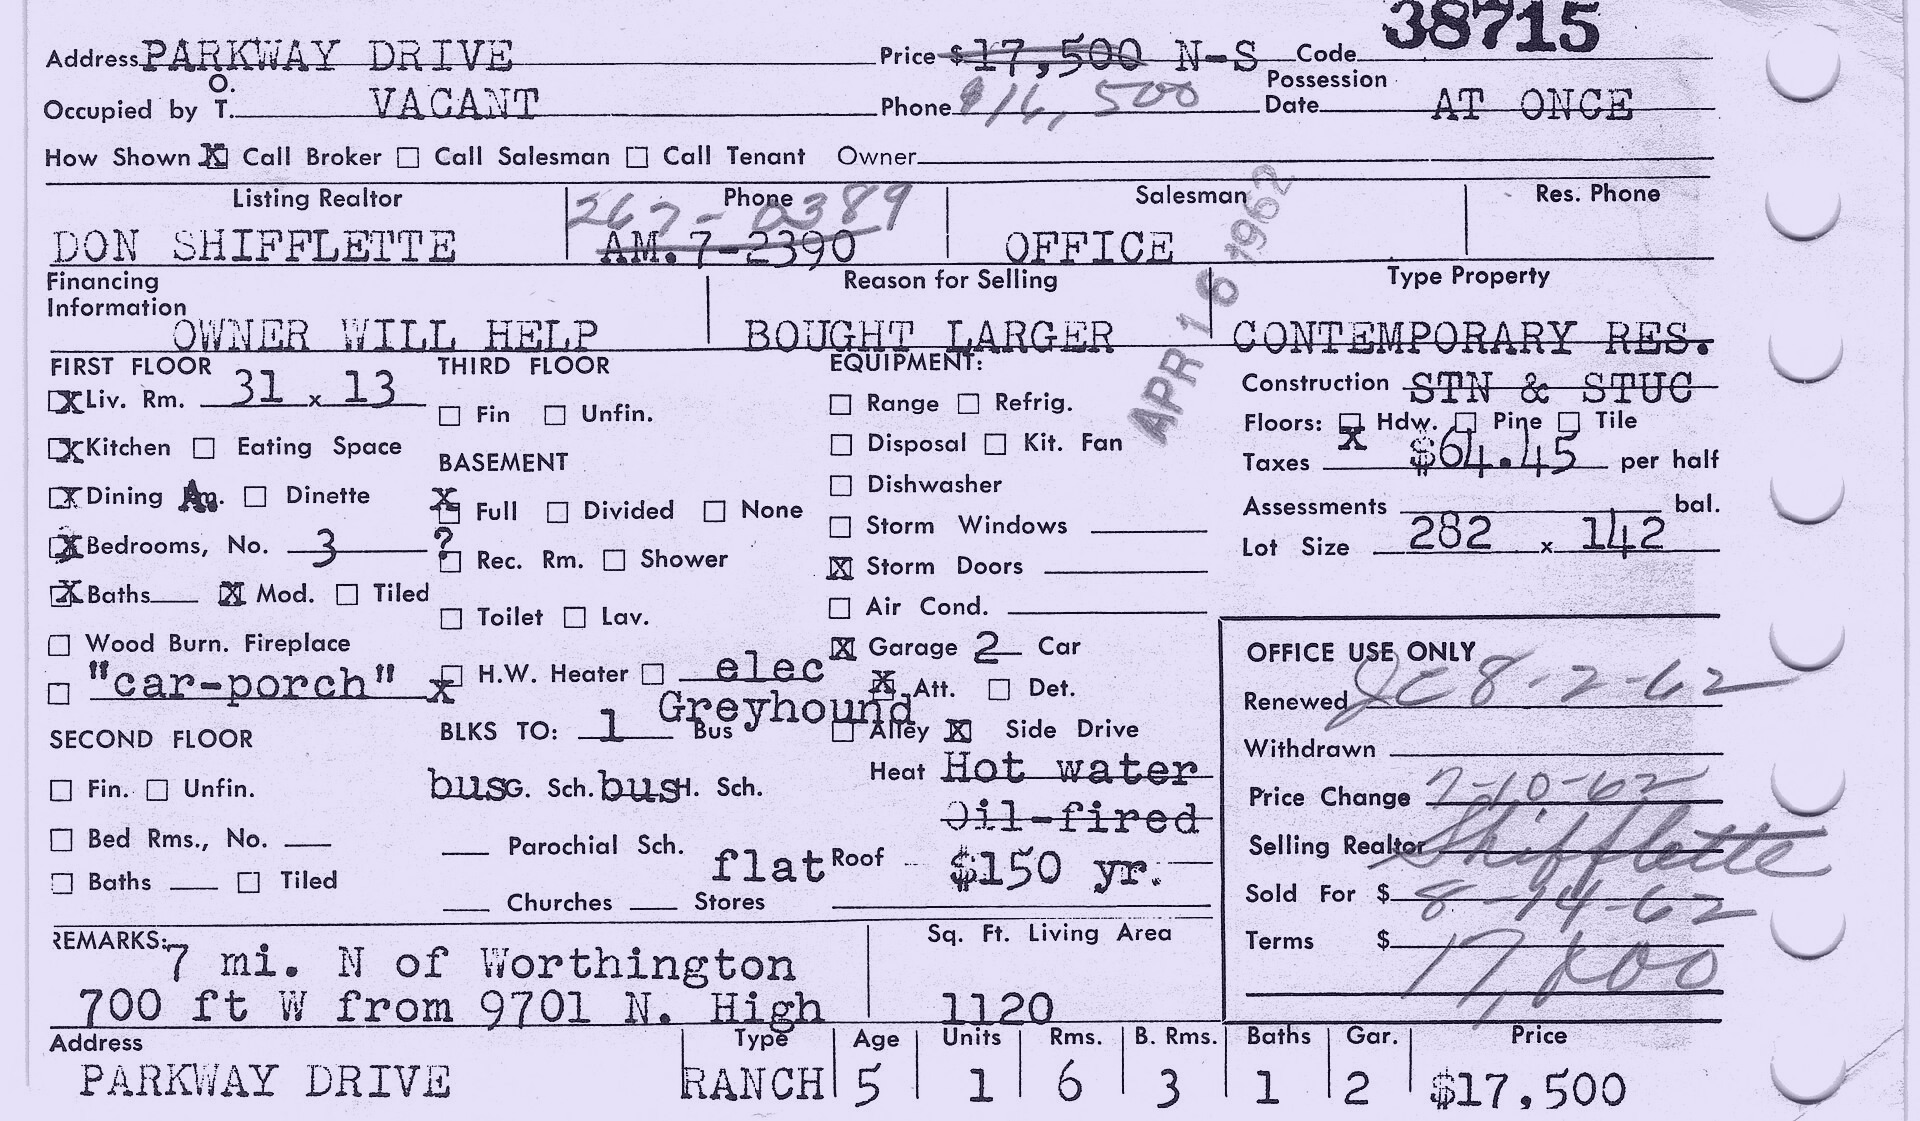 38715
Address PARKWAY DRIVE Price $17,500 N-S Code
Occupied by O. T. VACANT Phone $16,500 Possession Date AT ONCE
How Shown X Call Broker Call Salesman Call Tenant Owner
Listing Realtor Phone Salesman Res. Phone
267-0389
DON SHIFFLETTE AM.7-2390 OFFICE
APR 16 1962
Financing Information Reason for Selling Type Property
OWNER WILL HELP BOUGHT LARGER CONTEMPORARY RES.
FIRST FLOOR THIRD FLOOR EQUIPMENT:
X Liv. Rm. 31 x 13 Fin Unfin. Range Refrig. Construction STN & STUC
X Kitchen Eating Space BASEMENT Disposal Kit. Fan Floors: X Hdw. Pine Tile
Taxes $64.45 per half
X Dining Dinette X Full Divided None Dishwasher Assessments bal.
X Bedrooms, No. 3 ? Rec. Rm. Shower Storm Windows Lot Size 282 x 142
X Storm Doors
X Baths X Mod. Tiled Toilet Lav. Air Cond.
Wood Burn. Fireplace X Garage 2 Car OFFICE USE ONLY
"car-porch" X H.W. Heater elec X Att. Det. Renewed 8-2-62
Greyhound
SECOND FLOOR BLKS TO: 1 Bus Alley X Side Drive Withdrawn
Fin. Unfin. bus G. Sch. bus H. Sch. Heat Hot water Price Change 7-10-62
Oil-fired
Bed Rms., No. Parochial Sch. Selling Realtor Shifflette
Baths Tiled flat Roof $150 yr. Sold For $ 8-14-62
Churches Stores
REMARKS: Sq. Ft. Living Area Terms $ 17,000
7 mi. N of Worthington
700 ft W from 9701 N. High 1120
Address Type Age Units Rms. B. Rms. Baths Gar. Price
PARKWAY DRIVE RANCH 5 1 6 3 1 2 $17,500